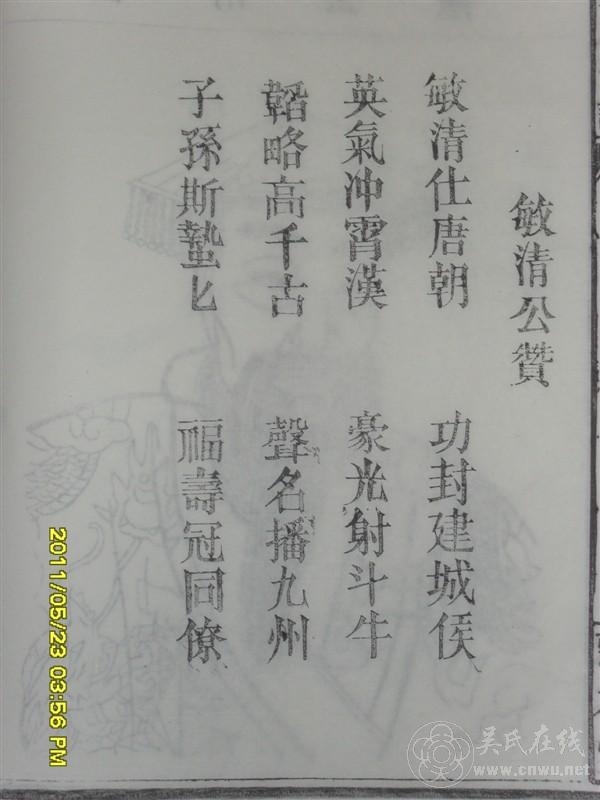 敏清公贊
敏清仕唐朝 功封建城侯
英氣冲霄漢 豪光射斗牛
韜略高千古 聲名播九州
子孫斯蟄匕 福壽冠同僚
2011/05/23 03:56 PM
吴氏在线
www.cnwu.net